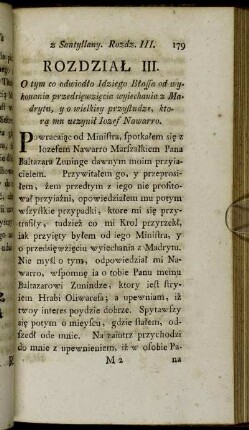 z Santyllany. Rozdz. III. 179
ROZDZIAŁ III.
O tym co odwiodło Idziego Blassa od wy-
konania przedsięwzięcia wyiechania z Ma-
drytu, y o wielkiey przysłudze, kto-
rą mu uczynił Iozef Nawarro.
Powracaiąc od Ministra, spotkałem się z
Iozefem Nawarro Marszałkiem Pana
Baltazara Zuninge dawnym moim przyia-
cielem. Przywitałem go, y przeprosi-
łem, żem przedtym z iego nie profito-
wał przyiaźni, opowiedziałem mu potym
wszystkie przypadki, ktore mi się przy-
trafiły, tudzież co mi Krol przyrzekł,
iak przyięty byłem od iego Ministra, y
o przedsięwzięciu wyiechania z Madrytu.
Nie myśl o tym, odpowiedział mi Na-
warro, wspomnę ia o tobie Panu memu
Baltazarowi Zunindze, ktory iest stry-
iem Hrabi Oliwaresa; a upewniam, iż
twoy interes poydzie dobrze. Spytawszy
się potym o mieyscu, gdzie stałem, od-
szedł ode mnie. Na zaiutrz przychodzi
do mnie z upewnieniem, iż w osobie Pa-
M 2 na